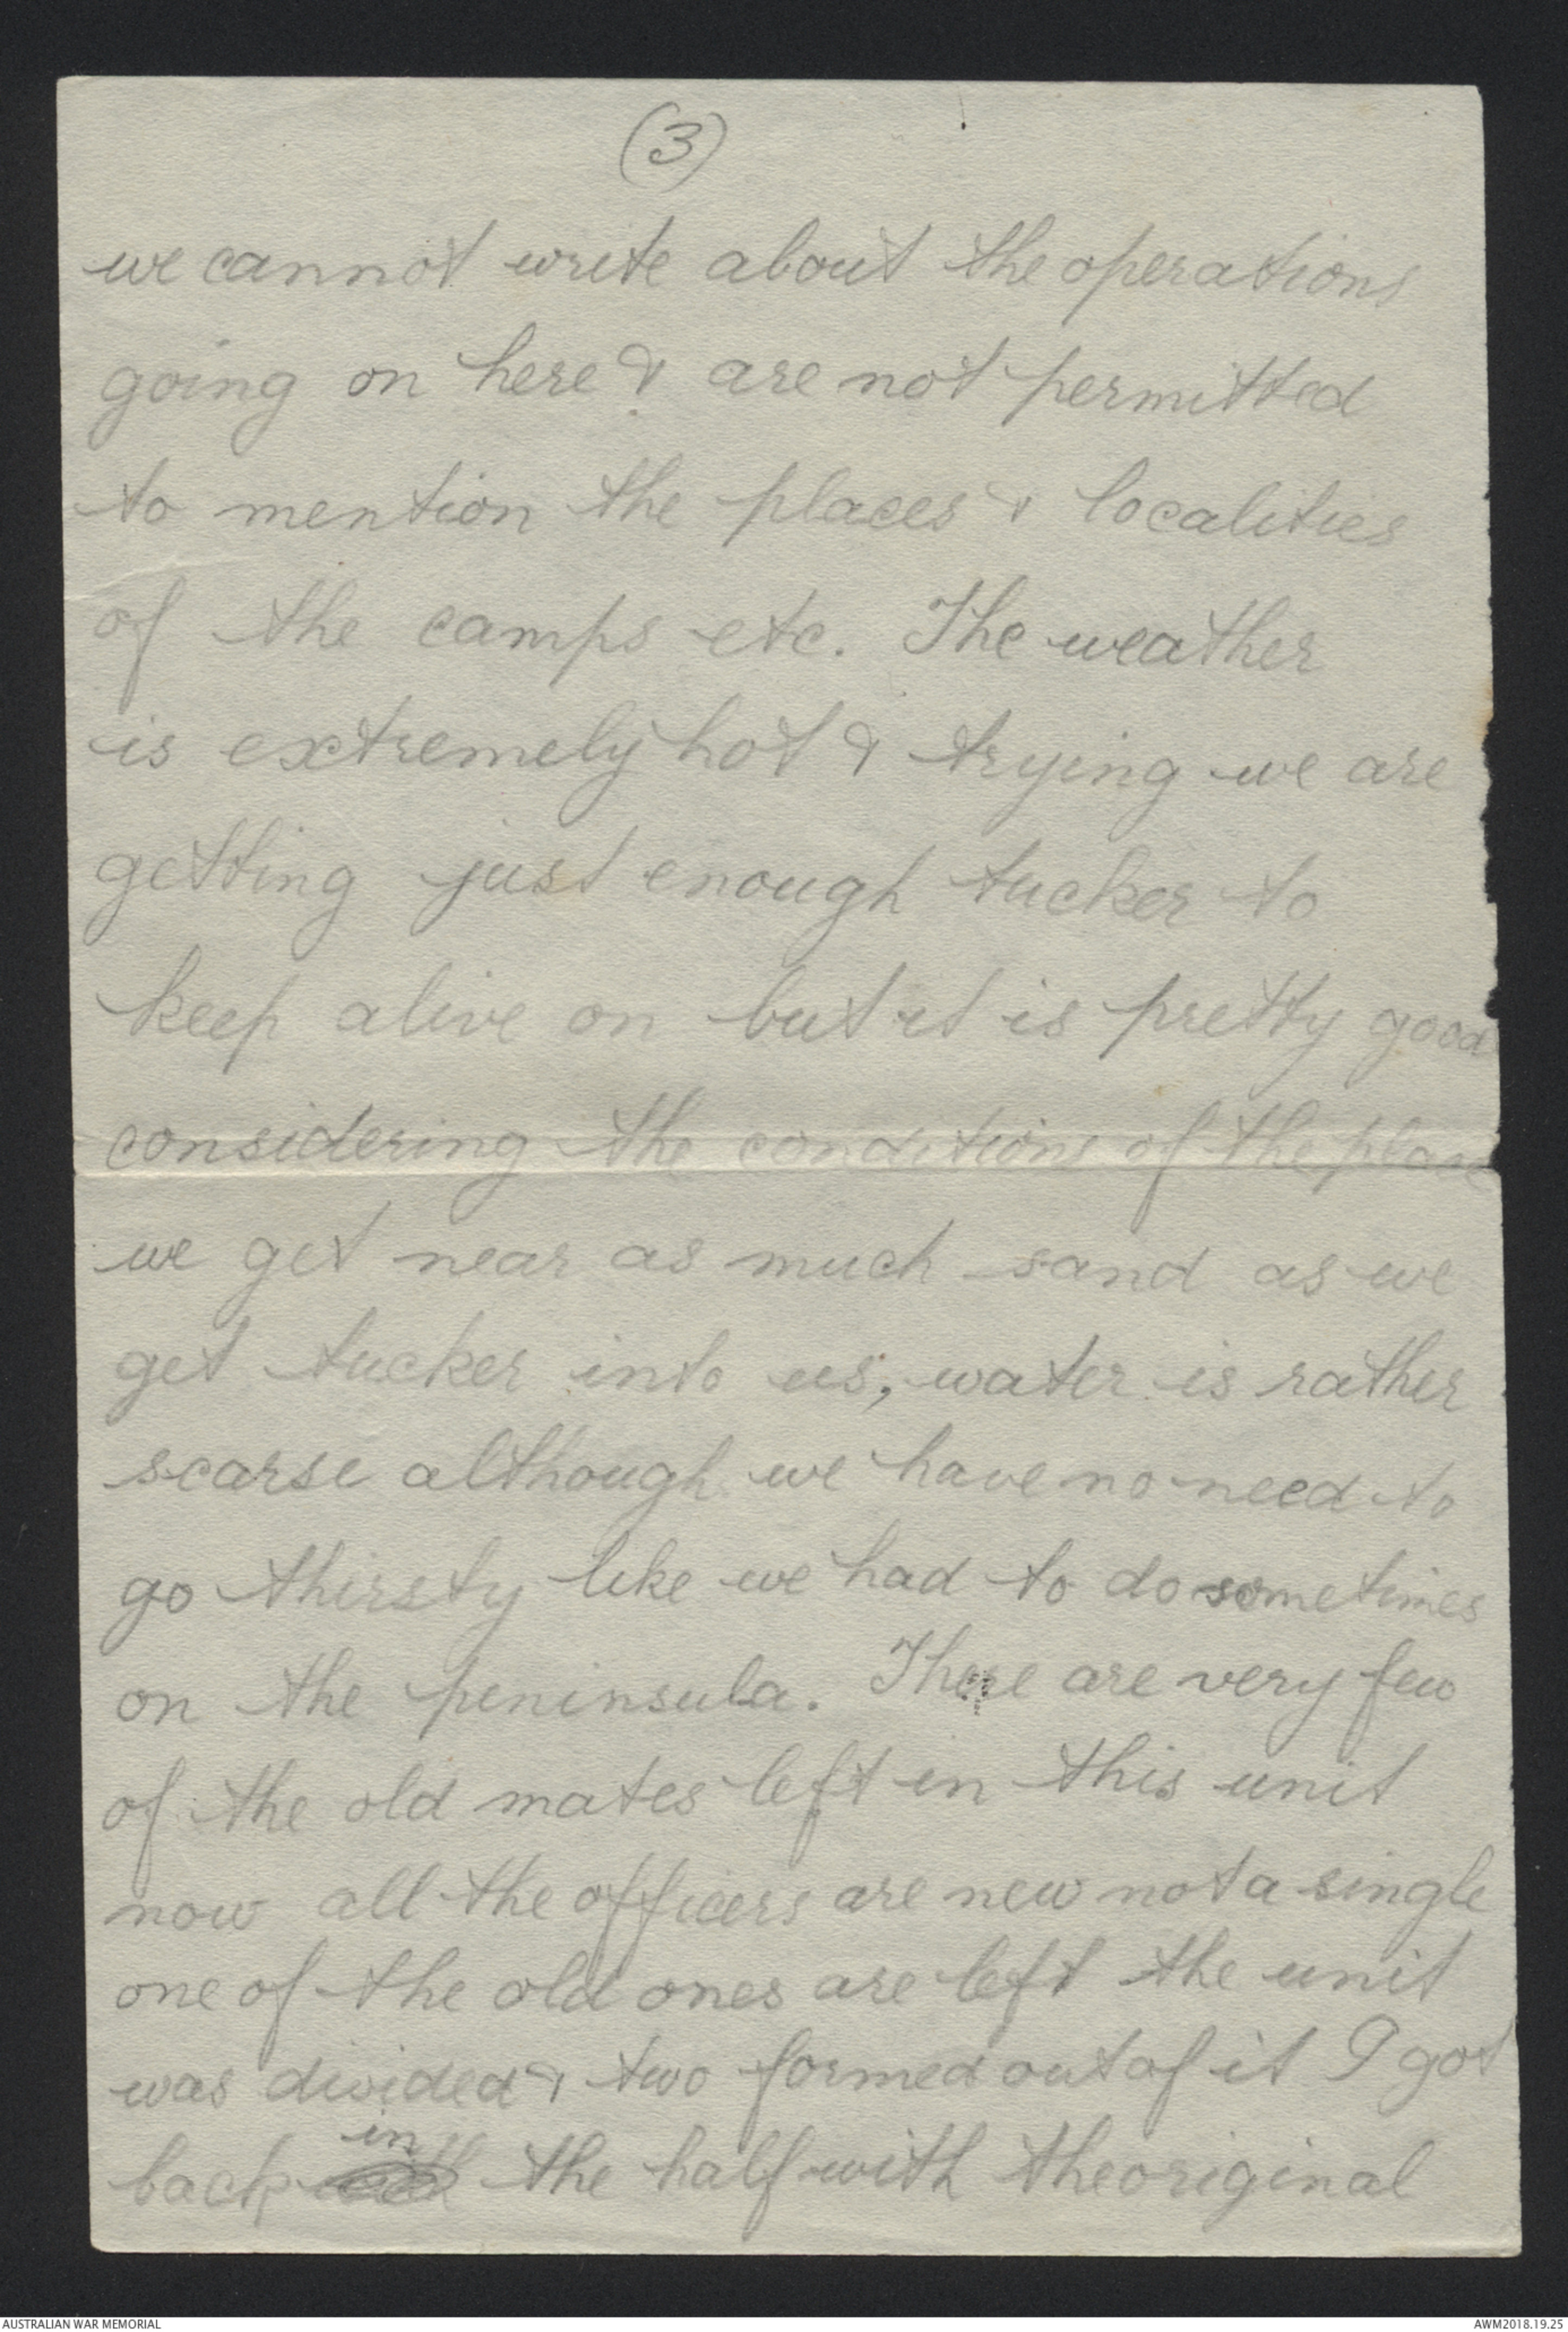 (3)
we cannot write about the operations
going on here & are not permitted
to mention the places & localities
of the camps etc. The weather
is extremely hot & trying we are
getting just enough tucker to
keep alive on but it is pretty good
considering the conditions of the place
we get near as much sand as we
get tucker into us, water is rather
scarse although we have no need to
go thirsty like we had to do sometimes
on the peninsula. There are very few
of the old mates left in this unit
now all the officers are new not a single
one of the old ones are left the unit
was divided & two formed out of it I got
in
back the half with the original
AUSTRALIAN WAR MEMORIAL
AWM2018.19.25